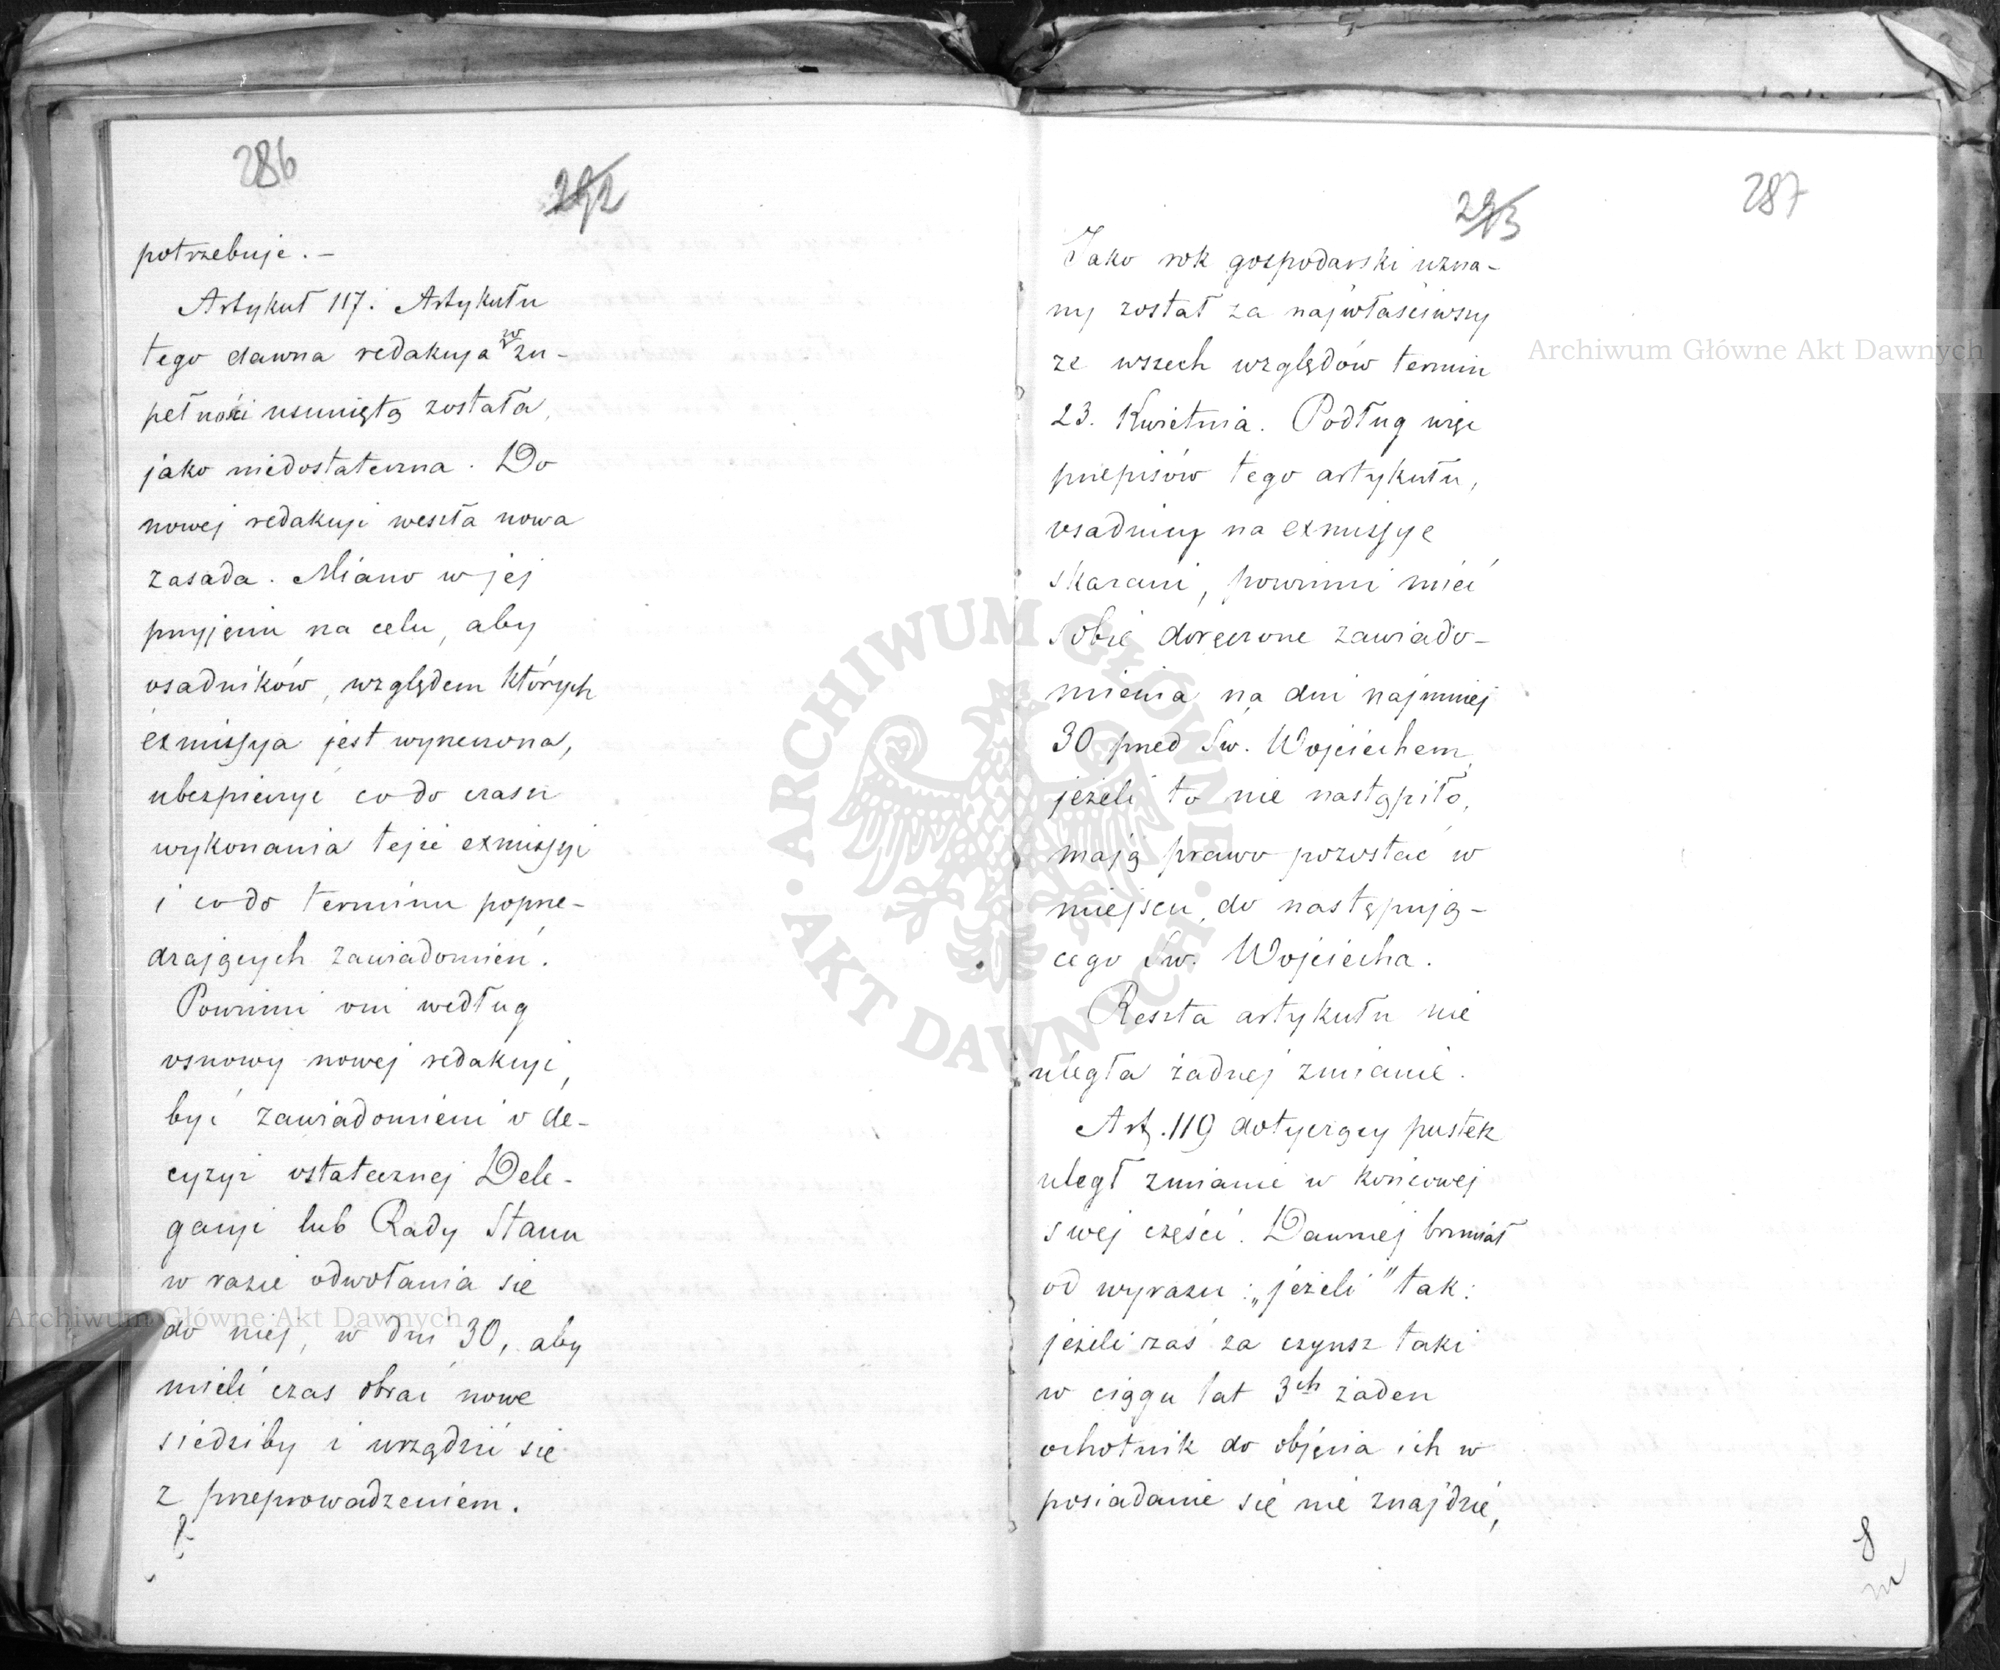 286
292
potrzebuje. –
Artykuł 117. Artykułu
tego dawna redakcya w zu-
pełności usuniętą została,
jako niedostateczna. Do
nowej redakcyi weszła nowa
zasada. Miano w jej
przyjęciu na celu, aby
osadników, względem których
exmissya jest wyrzeczona,
ubezpieczyć co do czasu
wykonania tejże exmissyi
i co do terminu poprze-
dzających zawiadomień.
Powinni oni według
osnowy nowej redakcyi,
być zawiadomieni o de-
cyzyi ostatecznej Dele-
gacyi lub Rady Stanu
w razie odwołania się
do niej, w dni 30, aby
mieli czas obrać nowe
siedziby i urządzić się
z przeprowadzeniem.
293
287
Jako rok gospodarski uzna-
ny został za najwłaściwszy
ze wszech względów termin
23. Kwietnia. Podług więc
przepisów tego artykułu,
osadnicy na exmissye
skazani, powinni mieć
sobie doręczone zawiado-
mienia na dni najmniej
30 przed Św. Wojciechem,
jeżeli to nie nastąpiło,
mają prawo pozostać w
miejscu do następują-
cego Św. Wojciecha.
Reszta artykułu nie
uległa żadnej zmianie.
Art. 119 dotyczący pustek
uległ zmianie w końcowej
swej części. Dawniej brzmiał
od wyrazu: „jeżeli" tak:
jeżeli zaś za czynsz taki
w ciągu lat 3ch żaden
ochotnik do objęcia ich w
posiadanie się nie znajdzie,
8
Archiwum Główne Akt Dawnych
Archiwum Główne Akt Dawnych
ARCHIWUM GŁÓWNE · AKT DAWNYCH ·